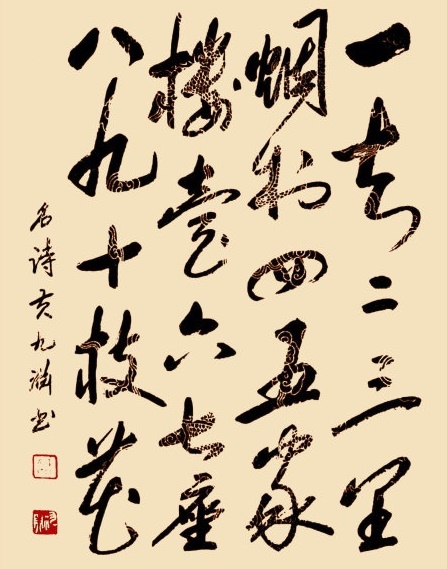 一去二三里
烟村四五家
楼臺六七座
八九十枝花
名诗